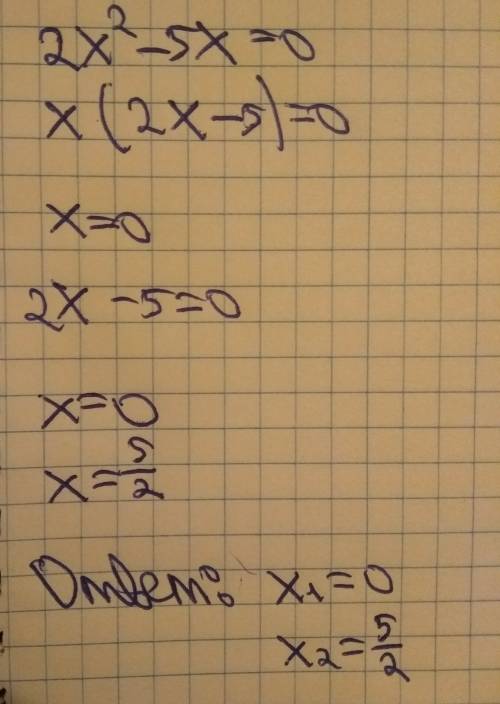 2x² - 5x = 0
x (2x - 5) = 0
x = 0
2x - 5 = 0
x = 0
x = 5/2
Ответ: x₁ = 0
x₂ = 5/2